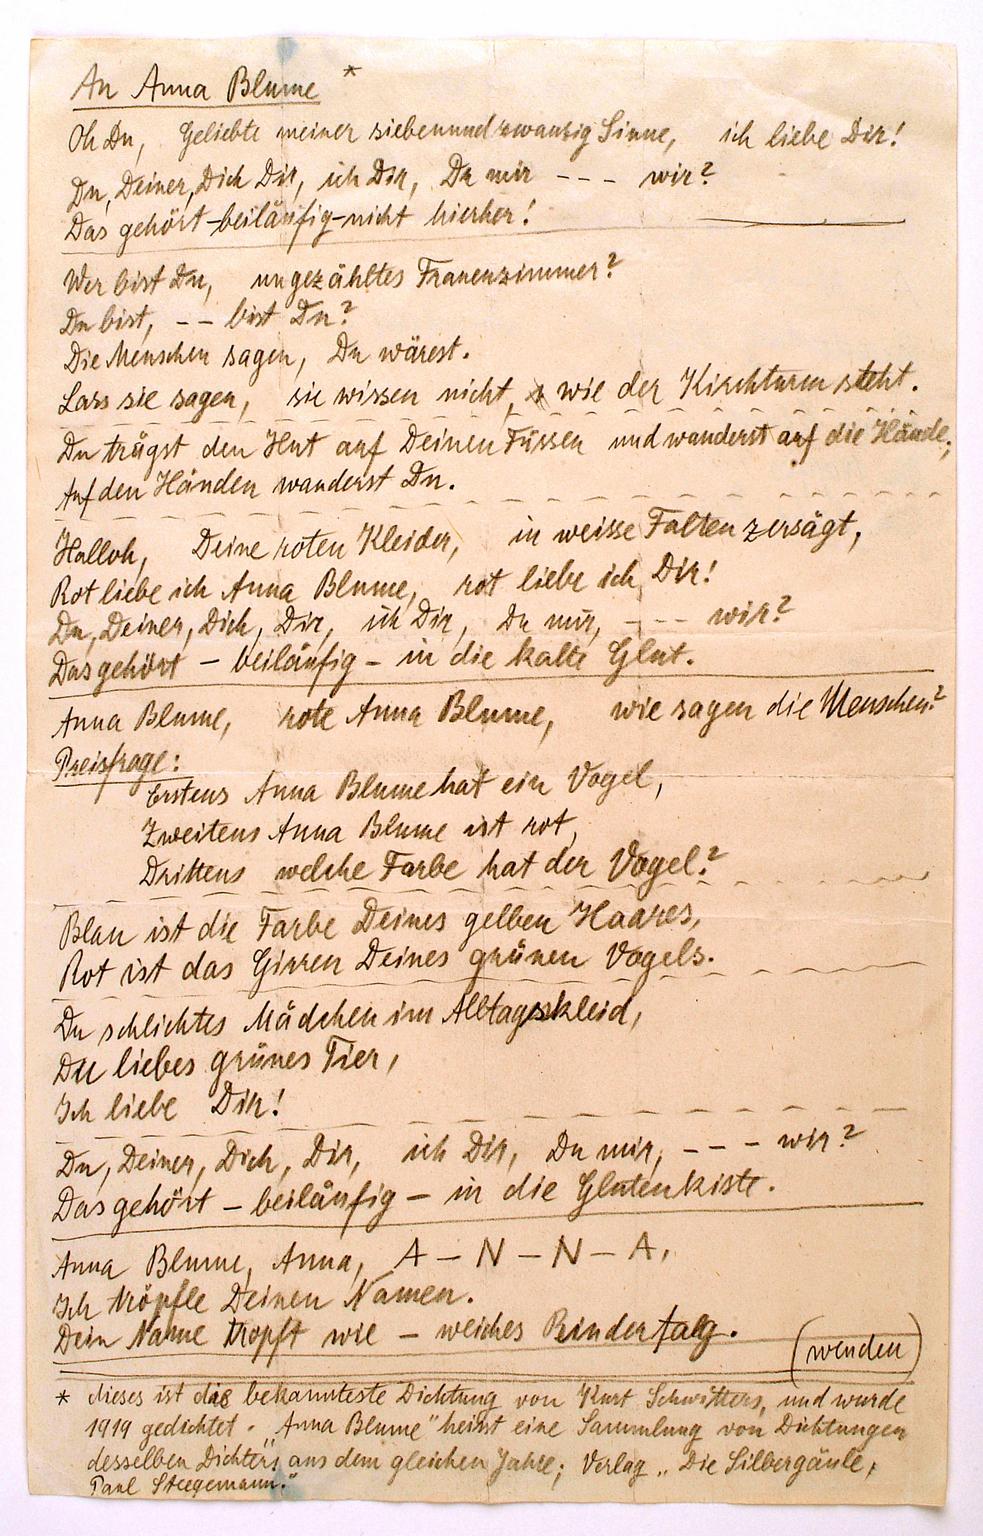 An Anna Blume *
Oh Du, Geliebte meiner siebenundzwanzig Sinne, ich liebe Dir!
Du, Deiner, Dich Dir, ich Dir, Du mir --- wir?
Das gehört-beiläufig-nicht hierher!
Wer bist Du, ungezähltes Frauenzimmer?
Du bist, -- bist Du?
Die Menschen sagen, Du wärest.
Lass sie sagen, sie wissen nicht, wie der Kirchturm steht.
Du trägst den Hut auf Deinen Füssen und wanderst auf die Hände,
Auf den Händen wanderst Du.
Halloh, Deine roten Kleider, in weisse Falten zersägt,
Rot liebe ich Anna Blume, rot liebe ich Dir!
Du, Deiner, Dich, Dir, ich Dir, Du mir, --- wir?
Das gehört - beiläufig - in die kalte Glut.
Anna Blume, rote Anna Blume, wie sagen die Menschen?
Preisfrage:
Erstens Anna Blume hat ein Vogel,
Zweitens Anna Blume ist rot,
Drittens welche Farbe hat der Vogel?
Blau ist die Farbe Deines gelben Haares,
Rot ist das Girren Deines grünen Vogels.
Du schlichtes Mädchen im Alltagskleid,
Du liebes grünes Tier,
Ich liebe Dir!
Du, Deiner, Dich, Dir, ich Dir, Du mir, --- wir?
Das gehört - beiläufig - in die Glutenkiste.
Anna Blume, Anna, A - N - N - A,
Ich tröpfle Deinen Namen.
Dein Name tropft wie - weiches Rindertalg.
(wenden)
* dieses ist die bekannteste Dichtung von Kurt Schwitters, und wurde
1919 gedichtet. "Anna Blume" heisst eine Sammlung von Dichtungen
desselben Dichters aus dem gleichen Jahre; Verlag „Die Silbergäule,
Paul Steegemann."